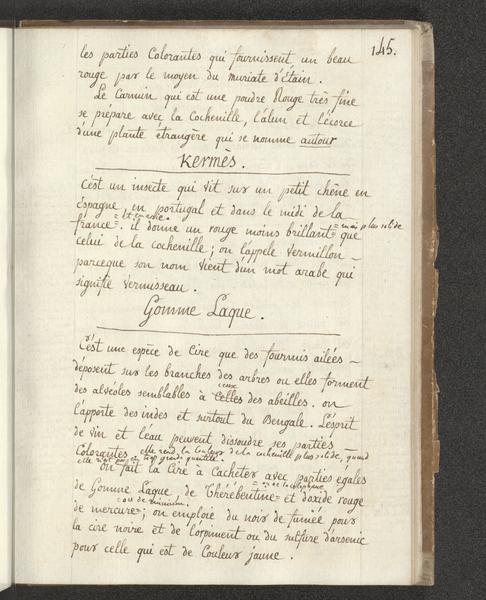 145.
les parties Colorantes qui fournissent un beau
rouge par le moyen du muriate d'étain.
Le Carmin qui est une poudre Rouge très fine
se prépare avec la Cochenille, l'alun et l'écorce
d'une plante étrangère qui se nomme autour
Kermès.
C'est un insecte qui vit sur un petit chêne en
Espagne, en portugal et dans le midi de la
france=. il donne un rouge moins brillant= =mais plus solide que
celui de la cochenille; on l'appele vermillon –
parceque son nom vient d'un mot arabe qui
signifie vermisseau.
Gomme Laque.
C'est une espèce de Cire que des fourmis ailées –
déposent sur les branches des arbres ou elles forment
des alvéoles semblables à ceux Celles des abeilles. on
l'apporte des indes et surtout du Bengale. L'esprit
de vin et l'eau peuvent dissoudre ses parties
Colorantes elle rend la couleur de la cochenille plus solide, quand
elle n'est pas en trop grande quantité.
on fait la Cire à Cacheter avec parties égales
de Gomme Laque, de Thérébentine= et d'oxide rouge
de mercure= =ou de minium; on emploie du noir de fumée pour
la cire noire et de l'orpiment ou du sulfure d'arsenic
pour celle qui est de Couleur jaune.